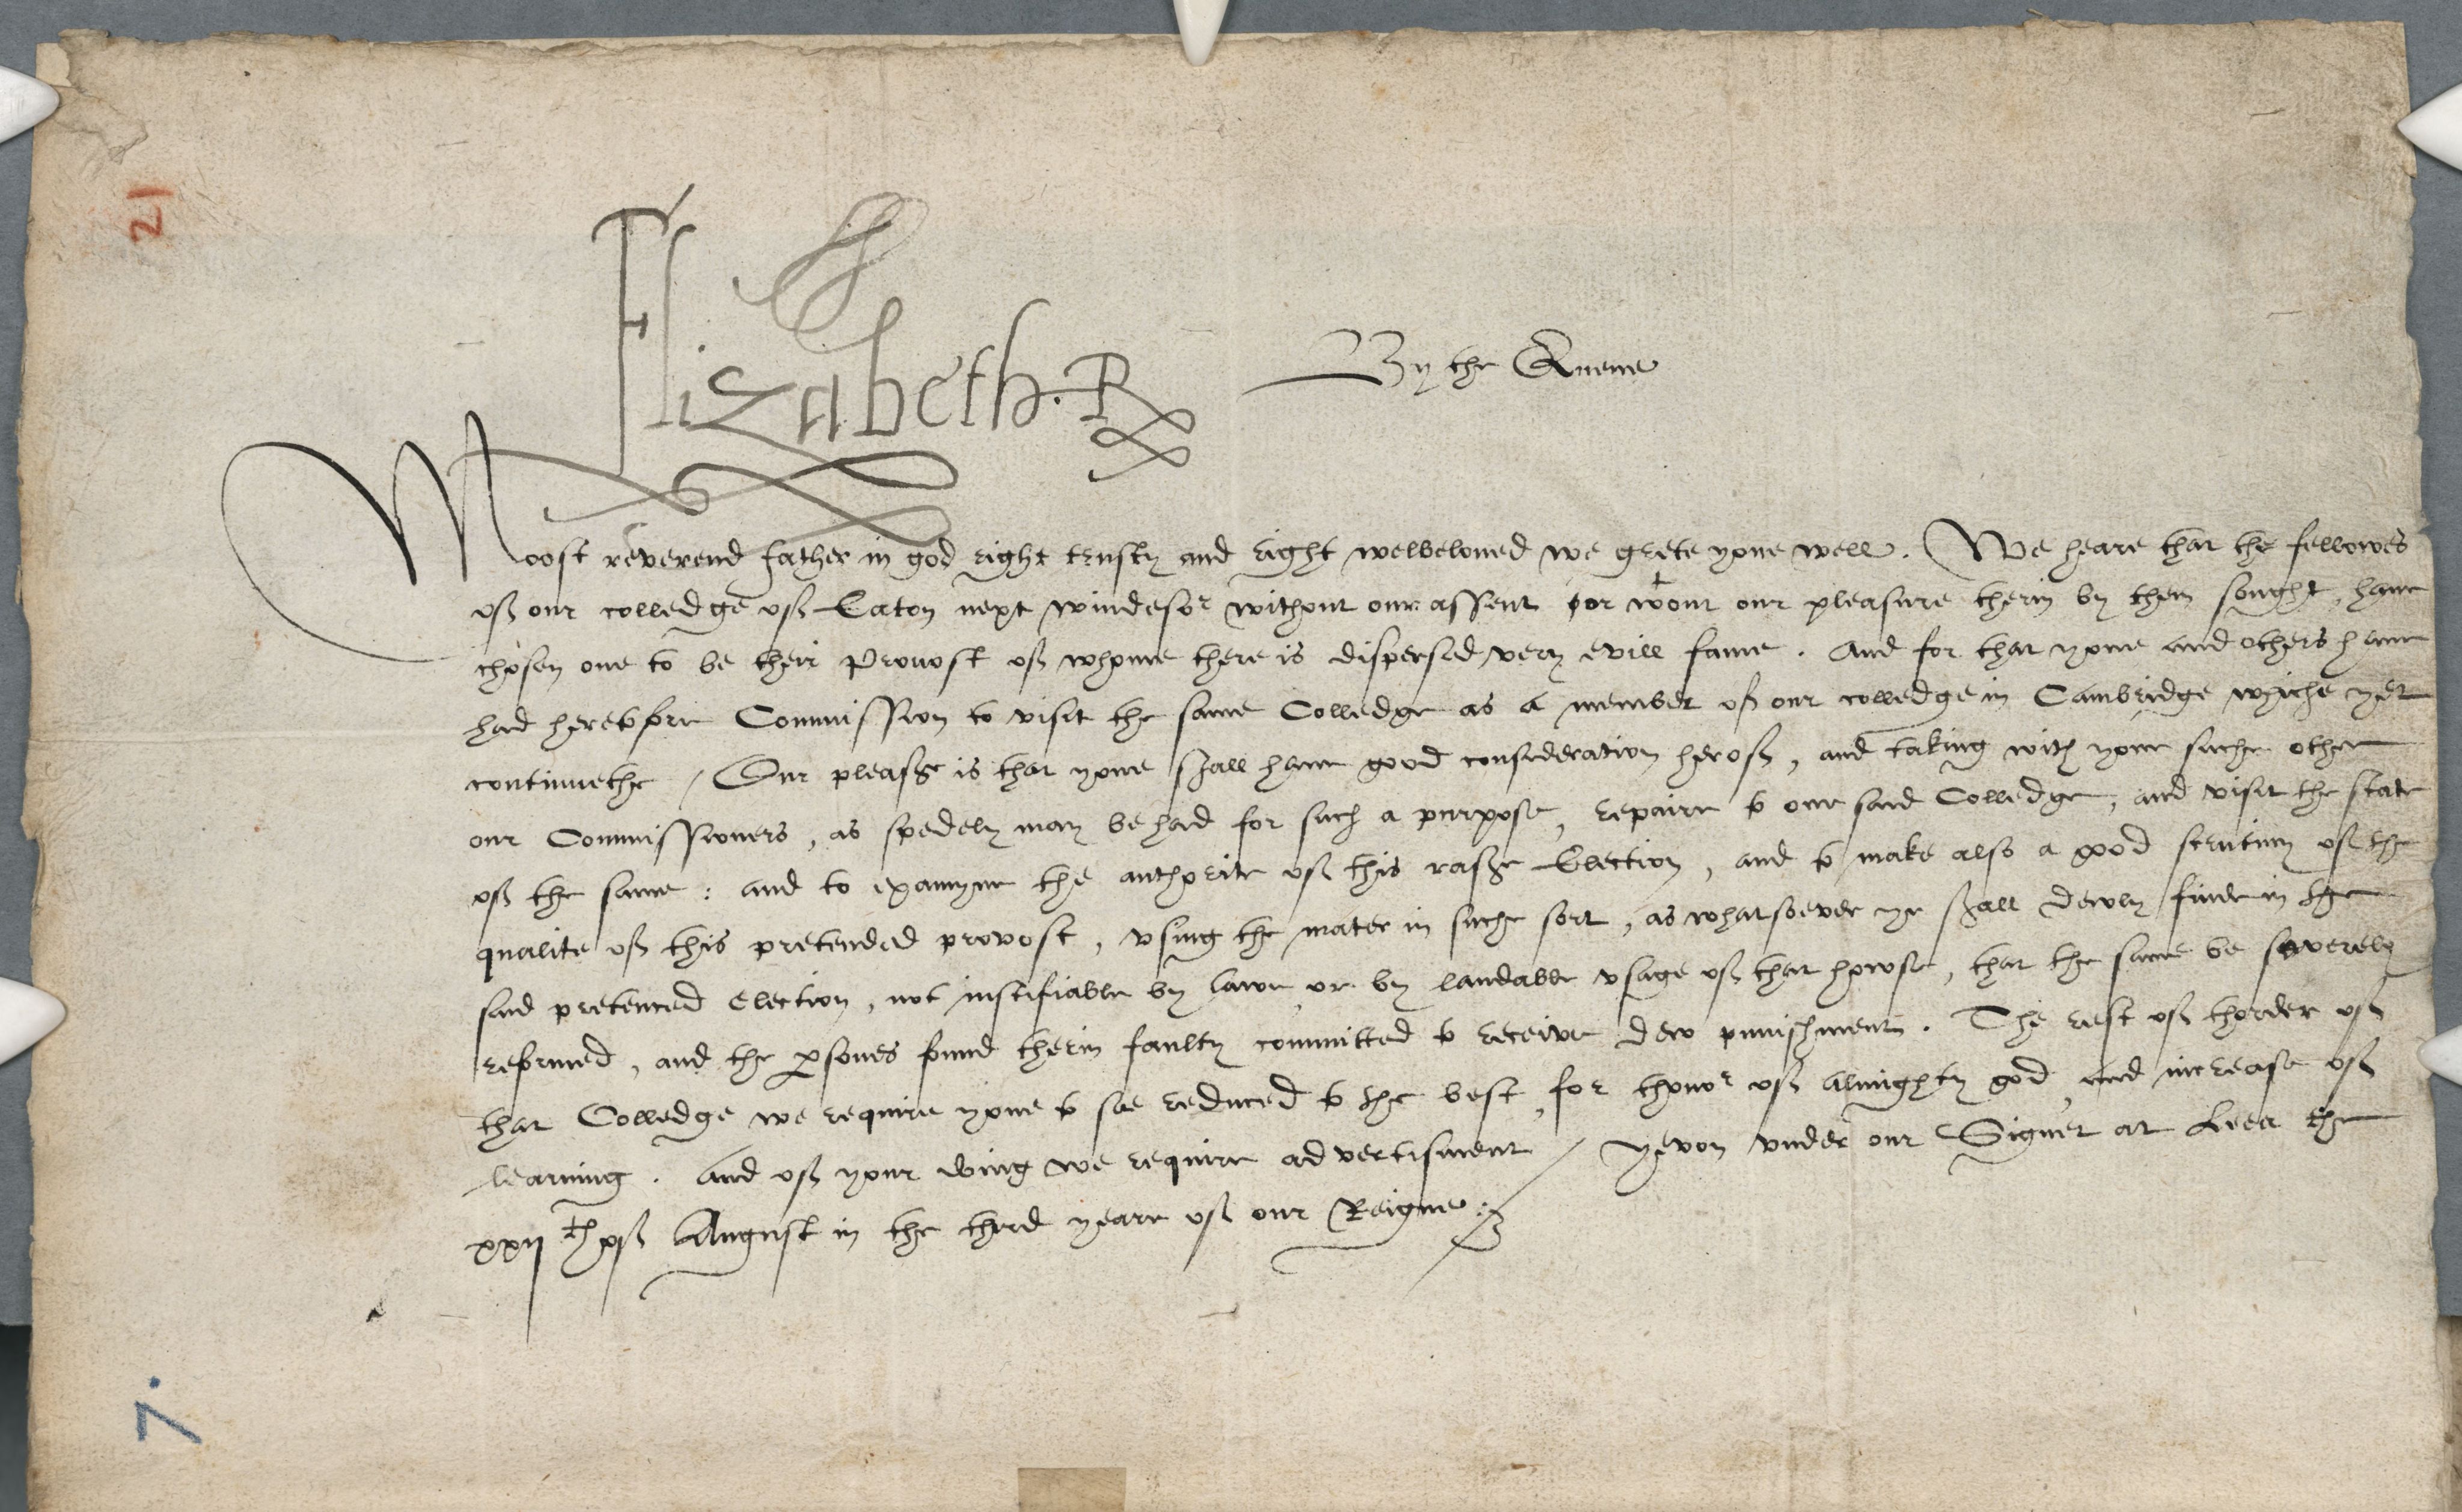 21
Elizabeth. R
By the Quene
Moost reverend father in god right trusty and right welbeloued we grete youe well. We heare that the fellowes
off our colledge off Eaton next windesor without our assent or wout our pleasure therin by them sought, haue
chosen one to be their Prouost off whome there is dispersed very evill fame. And for that youe and others haue
had heretofore Commission to visit the same Colledge as a member off our colledge in Cambridge whiche yet
continuethe / Our pleasr is that youe shall haue good consideration heroff, and taking with youe suche other
our Commissioners, as spedely may be had for such a purpose, repaire to our said Colledge, and visit the state
off the same: and to examyne the authorite off this rashe Election, and to make also a good scrutiny off the
qualite off this pretended provost, vsing the mater in suche sort, as whatsoever ye shall dewly finde in the
said pretenced election, not iustifiable by lawe or by laudable vsage off that howse, that the same be severely
reformed, and the psones found therin faulty committed to receive dew punishment. The rest off thorder off
that Colledge we require youe to see reduced to the best, for thonor off almighty god, and increase off
learning. And off your doing we require advertisment / Yevon vnder our Signet at Leea the
xxij th off August in the therd yeare off our Reigne
7.